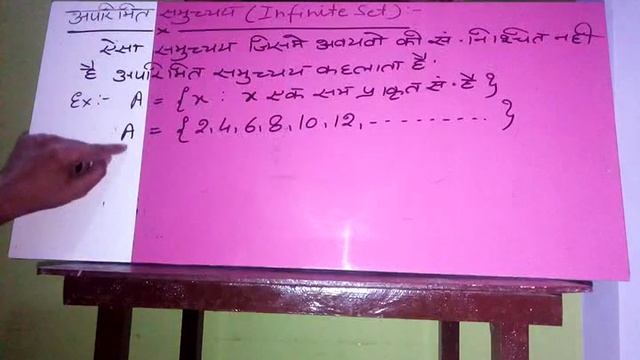 अपरिमित समुच्चय (Infinite Set):-
ऐसा समुच्चय जिसमे अवयवो की सं. निश्चित नही
है अपरिमित समुच्चय कहलाता है.
Ex:- A = {x : x एक सम प्राकृत सं. है}
A = {2,4,6,8,10,12,----------}